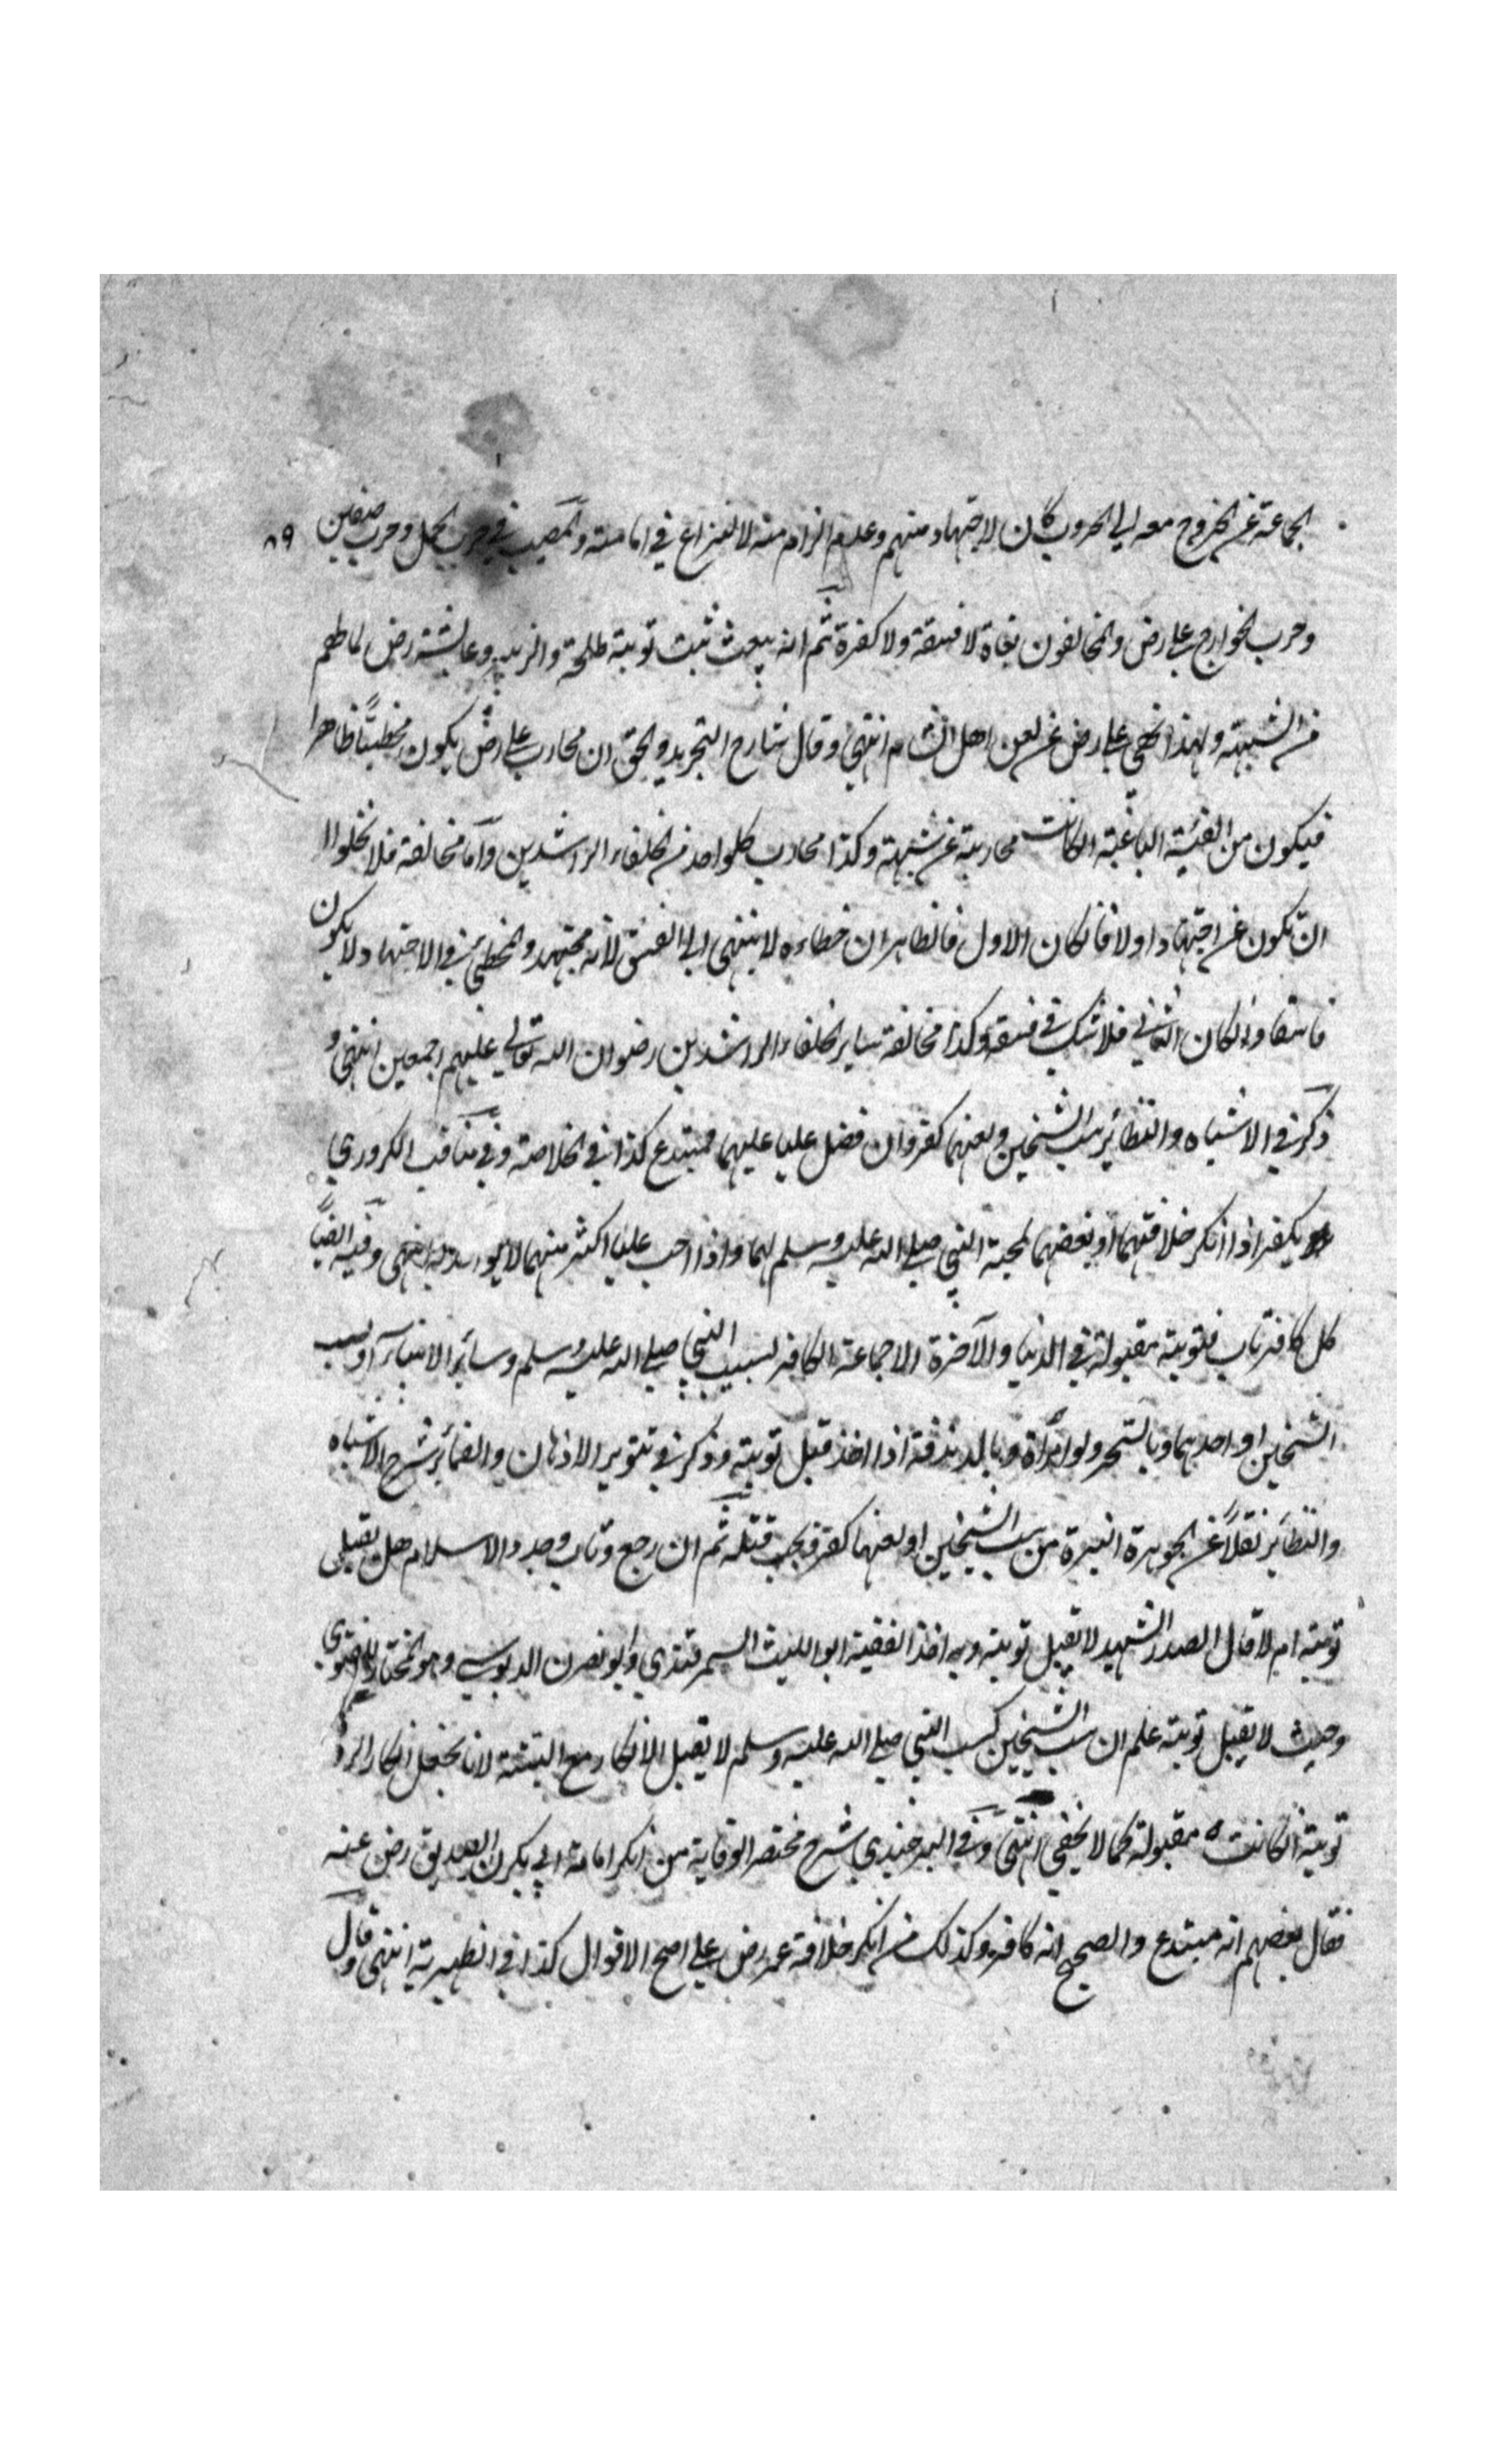 الجماعة عن الخروج معه الي الحروب كان لاجتهاد منهم وعدم الزام منه لا لنزاع في امامته والمصيب في حرب الجمل وحرب صفين
٨٩
وحرب الخوارج علي رض والمخالفون بغاة لا فسقة ولا كفرة ثم انه ثبت توبة طلحة والزبير وعايشة رض
من الشبهة ولهذا نهي علي رض عن لعن اهل الشام انتهي وقال شارح التجريد والحق ان محارب علي رض يكون مخطيًّا ظاهرا
فيكون من الفئية الباغية انكانت محاربة عن شبهة وكذا محارب كلواحد من الخلفاء الراشدين وأما مخالفة فلا يخلوا ا
ان يكون عن اجتهاد اولا فانكان الاول فالظاهر ان خطاءه لا ينتهي الي الفسق لانه مجتهد والمخطي في الاجتهاد لا يكون
فاسقا وانكان الثاني فلا شك في فسقه وكذا مخالفة ساير الخلفاء الراشدين رضوان الله تعالي عليهم اجمعين انتهي و
ذكر في الاشباه والنظائر سب الشيخين ولعنهما كفر وان فضل عليا عليهما فمبتدع كذا في الخلاصة وفي مناقب الكروري
يكفر اذا انكر خلافتهما او بغضهما لمحبة النبي صلي الله عليه وسلم لهما واذا احب عليا اكثر منهما لا يواخذ به انتهي وفيه ايضًا
كل كافر تاب فتوبته مقبولة في الدنيا والآخرة الا جماعة الكافر بسبب النبي صلي الله عليه وسلم وسائر الانبياء أو بسب
الشيخين او احدهما وبالسحر ولو امرأة وبالزندقة اذا اخذ قبل توبته وذكر في تنوير الاذهان والضمائر شرح الاشباه
والنظائر نقلاً عن الجوهرة النيرة من سب الشيخين او لعنهما كفر ويجب قتله ثم ان رجع وتاب وجدد الاسلام هل يقبل
توبته ام لا قال الصدر الشهيد لا يقبل توبته وبه اخذ الفقيه ابو الليث السمرقندي وابو نصرن الدبوسي وهو المختار للفتوي
وحيث لا يقبل توبته علم ان سب الشيخين كسب النبي صلي الله عليه وسلم لا يقبل الانكار مع البينة لانا نجعل انكار الردة
توبة انكانت مقبولة كما لا يخفي انتهي وفي البرجندي شرح مختصر الوقاية من انكر امامة ابي بكرن الصديق رض عنه
فقال بعضهم انه مبتدع والصحيح انه كافر وكذلك من انكر خلافة عمر رض علي اصح الاقوال كذا في الظهيرية انتهي وقال